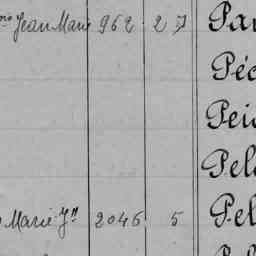 Jean Marie 962 27 Pa
Péc
Pei
Pel
Marie Jn 2046 5 Pel